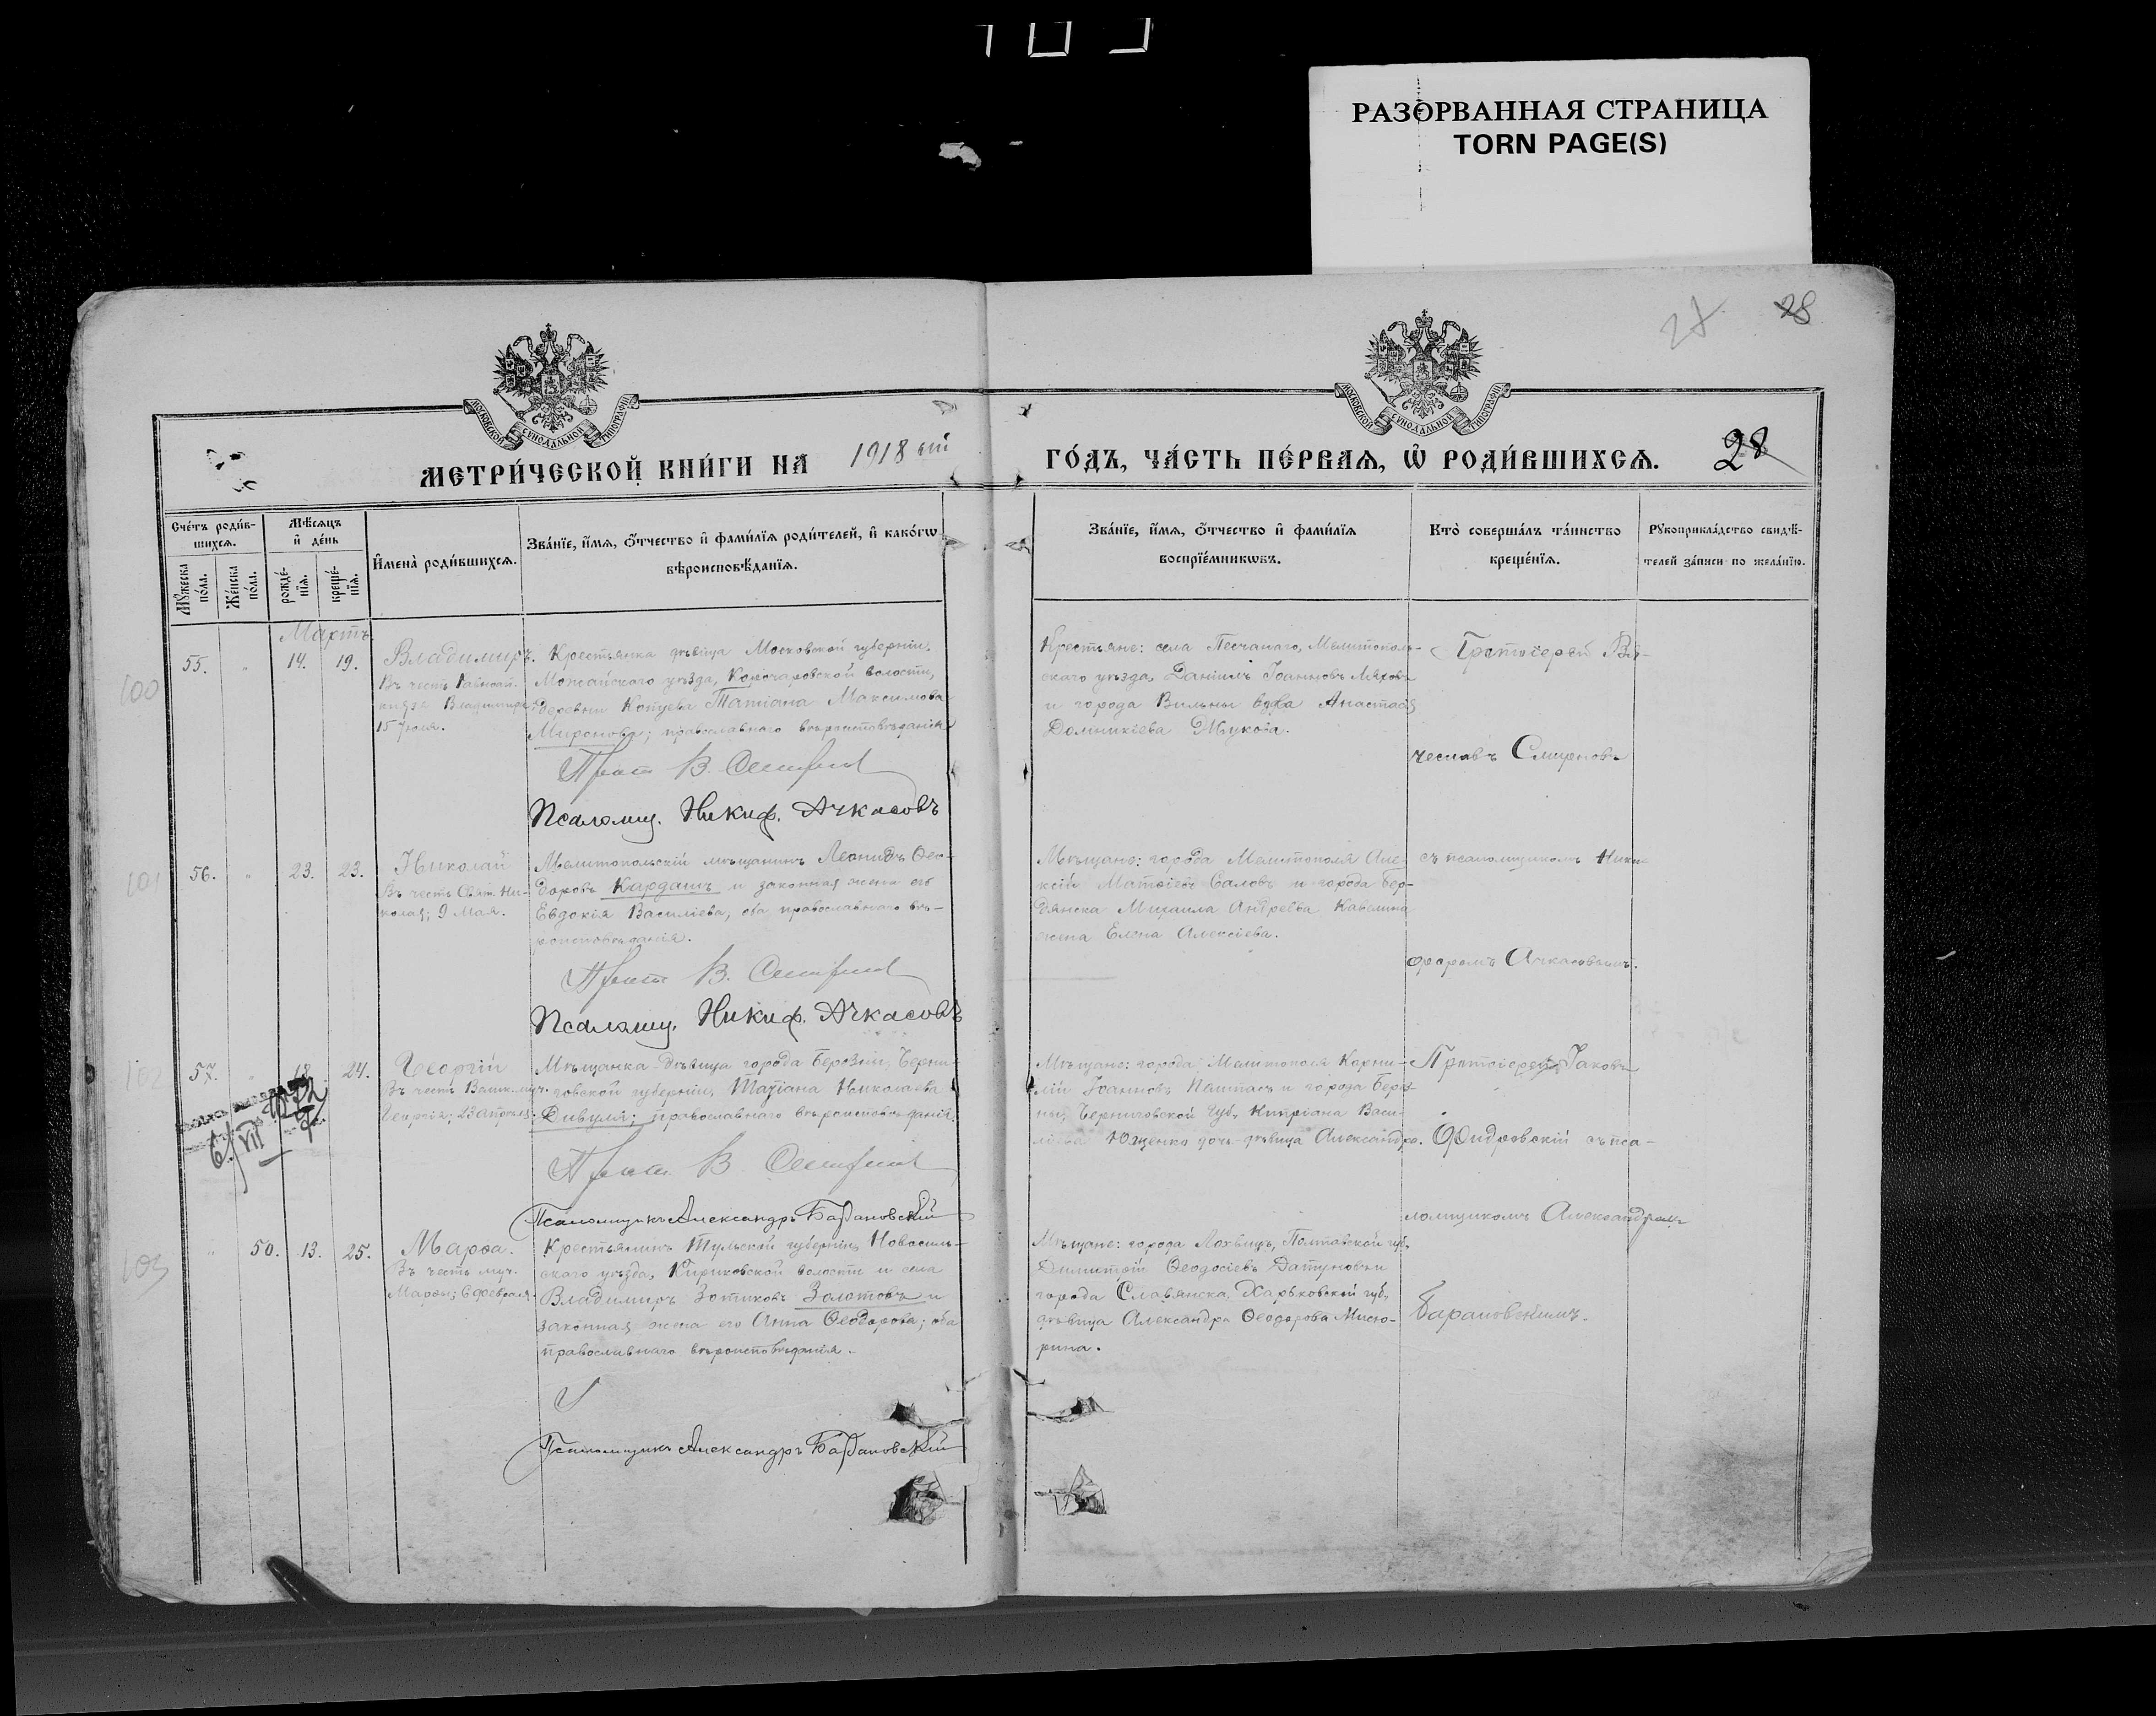 РАЗОРВАННАЯ СТРАНИЦА
TORN PAGE(S)
28
МОСКОВСКОЙ СѴНОДАЛЬНОЙ ТИПОГРАФІИ
МОСКОВСКОЙ СѴНОДАЛЬНОЙ ТИПОГРАФІИ
МЕТРИ́ЧЕСКОЙ КНИ́ГИ НА 1918 ый
ГО́ДЪ, ЧА́СТЬ ПЕ́РВАЯ, Ѡ РОДИ́ВШИХСЯ. 28
Сче́тъ роди́в-
шихся.
Мѣ́сяцъ
и де́нь
Мꙋ́жеска по́ла.
Же́нска по́ла.
рожде́-
нїя.
креще́-
нїя.
Имена̀ роди́вшихся.
Зва́нїе, и́мя, о́тчество и фами́лїя роди́телей, и како́гѡ
вѣроисповѣ́данїя.
Зва́нїе, и́мя, о́тчество и фами́лїя
воспрїе́мникѡвъ.
Кто̀ соверша́лъ та́инство
креще́нїя.
Рꙋкоприкла́дство свидѣ́-
телей за́писи по жела́нїю.
Мартъ
100
55. " 14. 19.
Владимиръ.
Въ честь Равноап.
князя Владимира;
15 Іюля.
Крестьянка дѣвица Московской губерніи,
Можайскаго уѣзда, Корочаровской волости,
деревни Копцева Татіана Максимова
Миронова; православнаго вѣроисповѣданія
Прот. В.
Псаломщ. Никиф. Ачкасовъ
Крестьяне: села Песчанаго, Мелитополь-
скаго уѣзда, Даніилъ Іоанновъ Ляховъ
и города Вильны вдова Анастасія
Доминикіева Жукова.
Протоіерей Вя-
чеславъ Смирновъ
101
56. " 23. 23.
Николай
Въ честь Свят. Ни-
колая; 9 Мая.
Мелитопольскій мѣщанинъ Леонидъ Ѳео-
доровъ Кардашъ и законная жена его
Евдокія Василіева; оба православнаго вѣ-
роисповѣданія.
Прот. В.
Псаломщ. Никиф. Ачкасовъ
Мѣщане: города Мелитополя Але-
ксій Матѳіевъ Саловъ и города Бер-
дянска Михаила Андреева Кавелина
жена Елена Алексіева.
съ псаломщикомъ Ники-
форомъ Ачкасовымъ.
102
57. " 18. 24.
Георгій
Въ честь Великомуч.
Георгія; 23 Апрѣля.
6/VII
Мѣщанка дѣвица города Березни, Черни-
говской губерніи, Татіана Николаева
Дивуля; православнаго вѣроисповѣданія.
Прот. В.
Псаломщикъ Александръ Барановскій
Мѣщане: города Мелитополя Корни-
лій Іоанновъ и города Берез-
ны, Черниговской губ., Кипріана Васи-
ліева Ющенко дочь-дѣвица Александра.
Протоіерей Іаковъ
съ пса-
ломщикомъ Александромъ
Барановскимъ.
103
" 50. 13. 25.
Марѳа.
Въ честь муч.
Марѳы; 6 февраля.
Крестьянинъ Тульской губерніи, Новосиль-
скаго уѣзда, Кириковской волости и села
Владимиръ Зотиковъ Золотовъ и
законная жена его Анна Ѳеодорова; оба
православнаго вѣроисповѣданія.
Псаломщикъ Александръ Барановскій
Мѣщане: города Лохвицъ, Полтавской губ.,
Димитрій Ѳеодосіевъ и
города Славянска, Харьковской губ.,
дѣвица Александра Ѳеодорова Мисю-
рина.